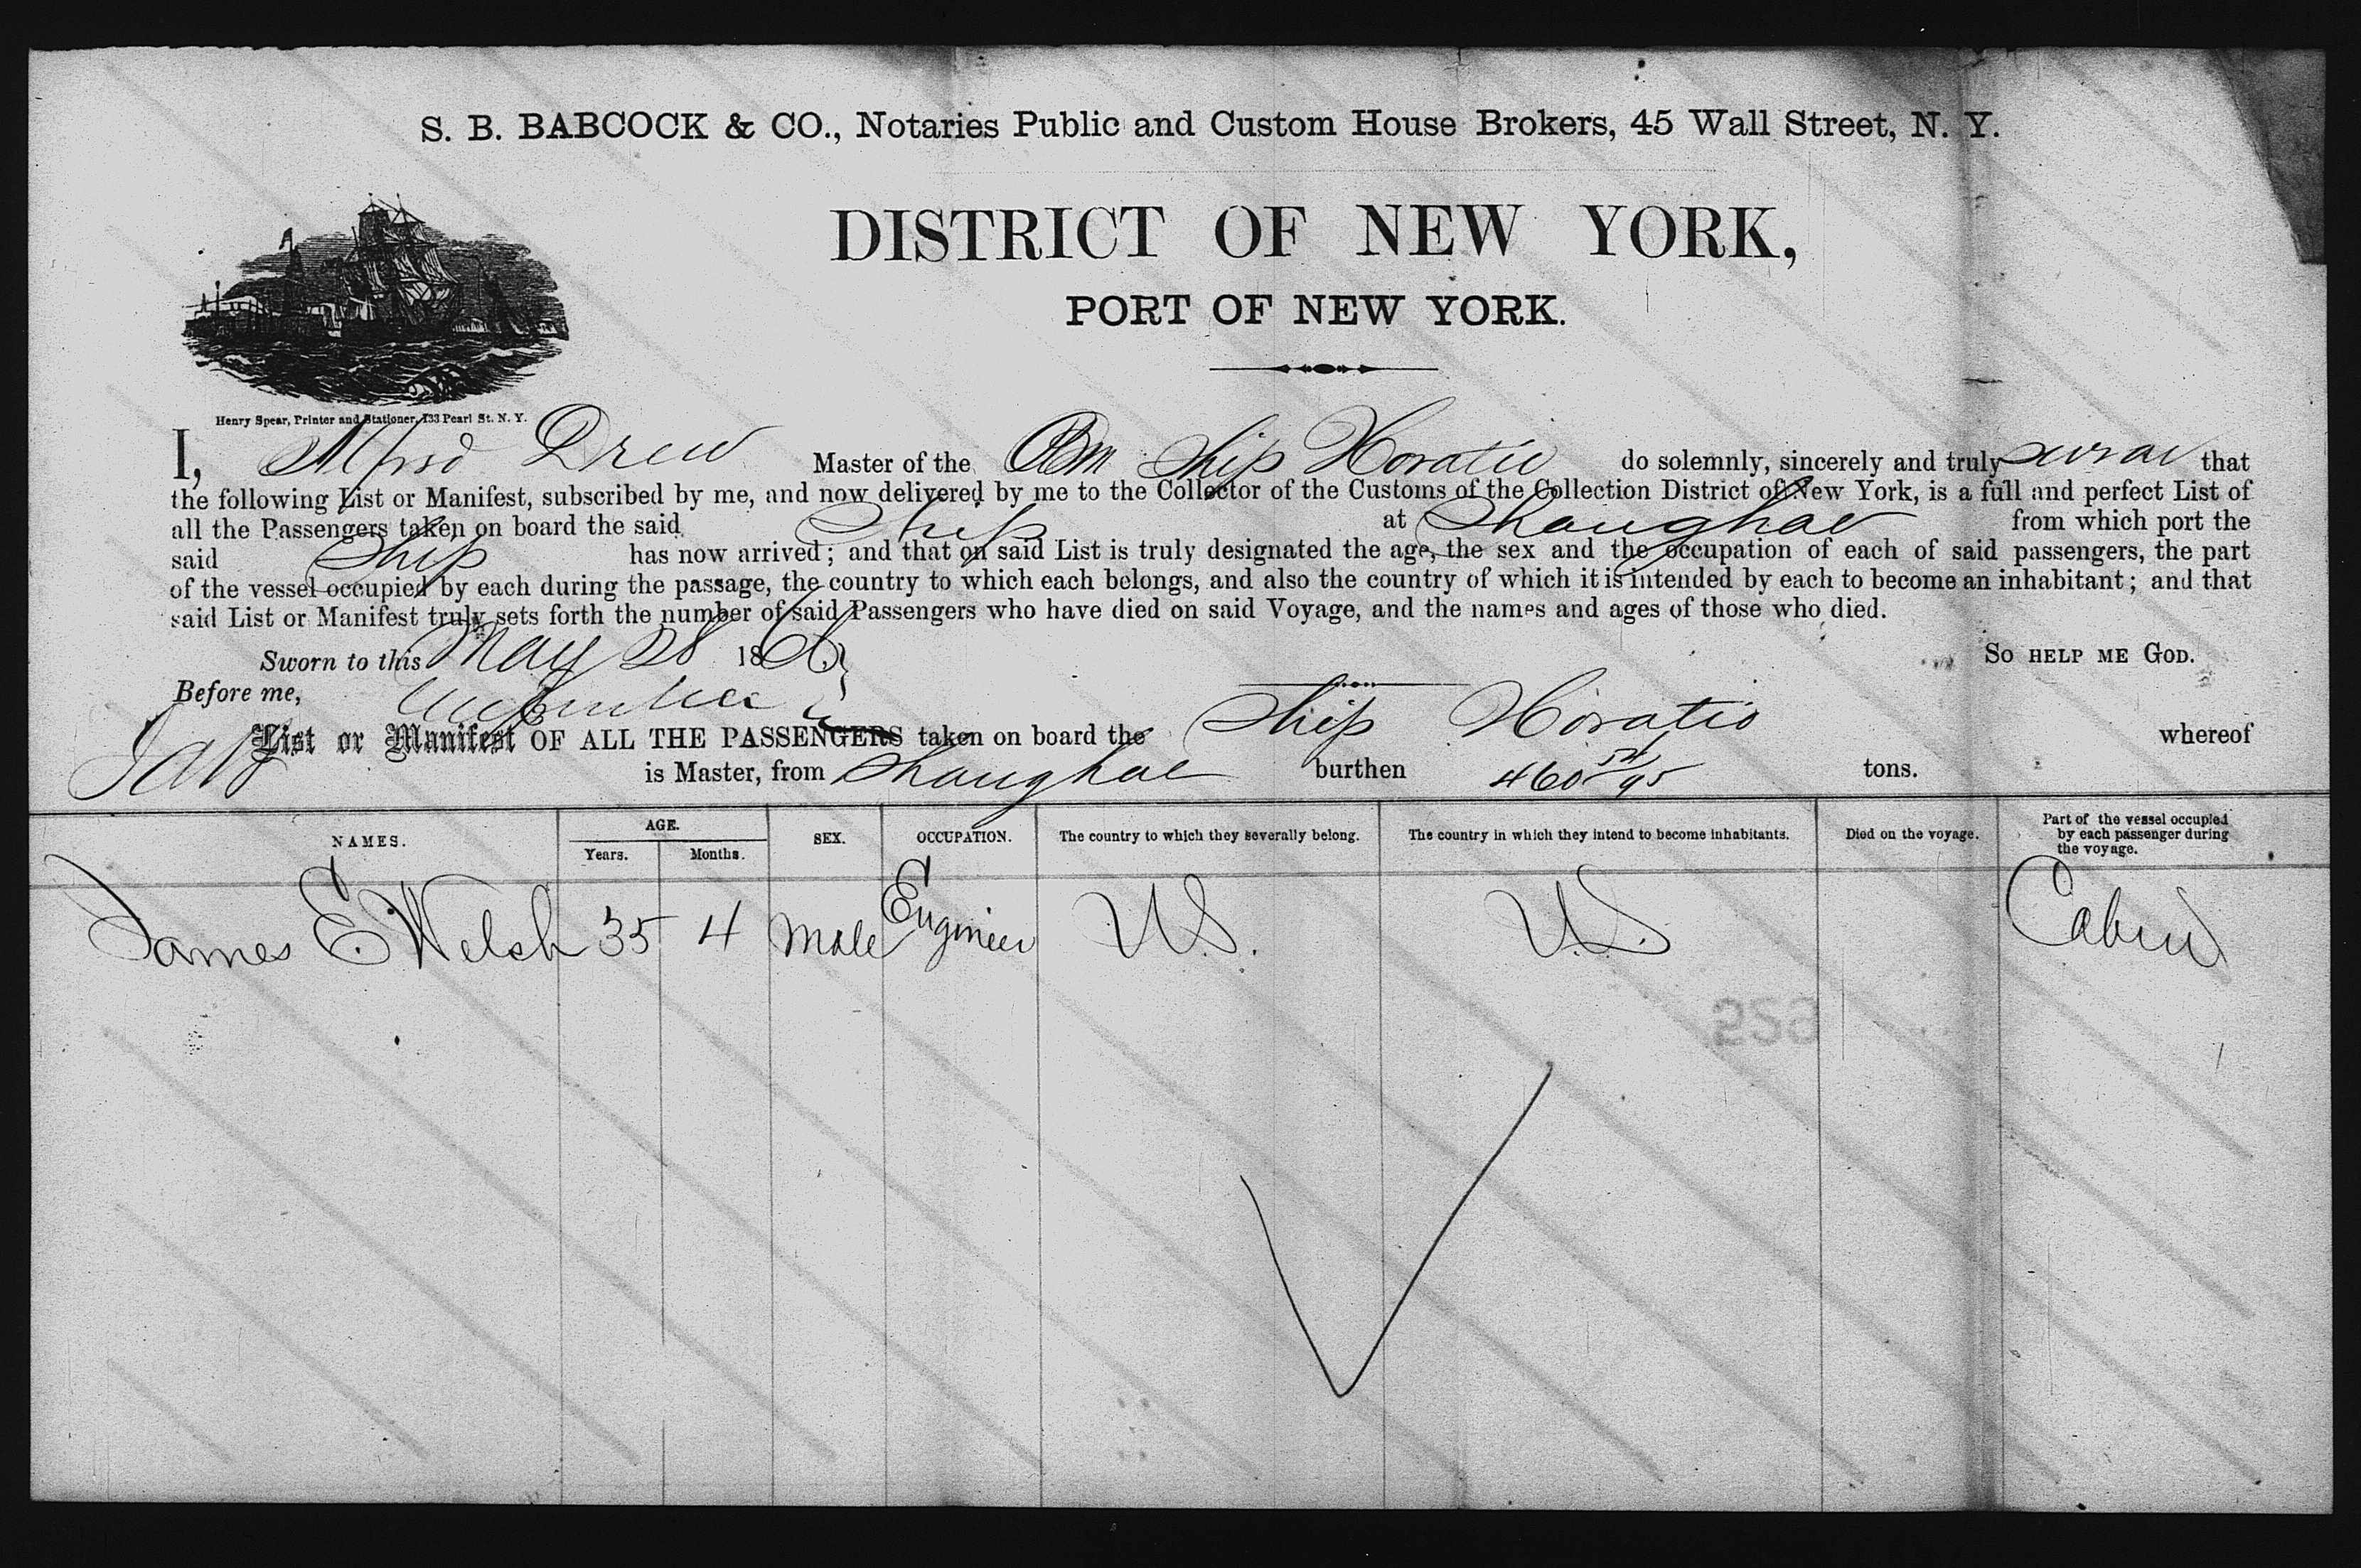 S. B. BABCOCK & CO., Notaries Public and Custom House Brokers, 45 Wall Street, N. Y.
DISTRICT OF NEW YORK,
PORT OF NEW YORK.
Henry Spear, Printer and Stationer, 133 Pearl St. N. Y.
I, Alfred Drew Master of the Ship Horatio do solemnly, sincerely and truly swear that
the following List or Manifest, subscribed by me, and now delivered by me to the Collector of the Customs of the Collection District of New York, is a full and perfect List of
all the Passengers taken on board the said Ship at Shanghae from which port the
said Ship has now arrived; and that on said List is truly designated the age, the sex and the occupation of each of said passengers, the part
of the vessel occupied by each during the passage, the country to which each belongs, and also the country of which it is intended by each to become an inhabitant; and that
said List or Manifest truly sets forth the number of said Passengers who have died on said Voyage, and the names and ages of those who died.
Sworn to this May 28 186
So help me God.
Before me,
List or Manifest OF ALL THE PASSENGERS taken on board the Ship Horatio whereof
is Master, from Shanghae burthen 460 54/95 tons.
NAMES. AGE. Years. Months. SEX. OCCUPATION. The country to which they severally belong. The country in which they intend to become inhabitants. Died on the voyage. Part of the vessel occupied by each passenger during the voyage.
James E. Welsh 35 4 Male Engineer U.S. U.S. Cabin